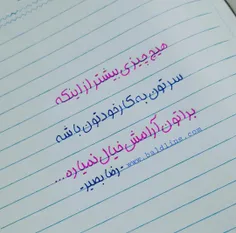 هیچ چیزی بیشتر از اینکه
سرتون به کار خودتون باشه
براتون آرامش خیال نمیاره...
www.baldline.com
-رضا بصیر-